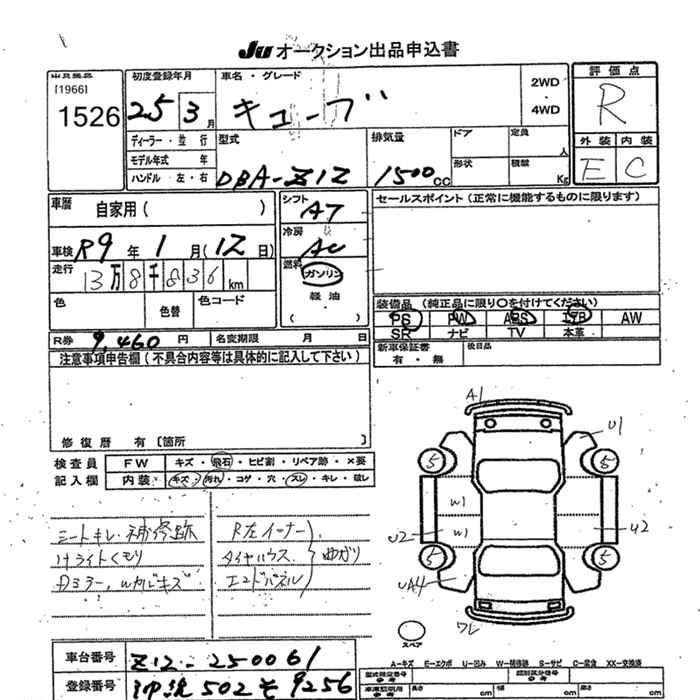 JU オークション出品申込書
出品類区
[1966]
1526
初度登録年月
25 3月
ディーラー・並行
モデル年式 年
ハンドル 左・右
車名・グレード
キューブ
2WD
・
4WD
型式
DBA-Z12
排気量
1500cc
ドア
定員
人
形状
積載
Kg
評価点
R
外装 内装
E C
車歴 自家用( )
車検 R9年 1月(12日)
走行 13万8千836km
色
色替
色コード
シフト
AT
冷房
AC
燃料
ガソリン
軽油
・( )
セールスポイント(正常に機能するものに限ります)
装備品(純正品に限り○を付けてください)
PS PW ABS エアB AW
SR ナビ TV 本革
新車保証書
有・無
後日品
R券 9,460円 名変期限 月 日
注意事項申告欄(不具合内容等は具体的に記入して下さい)
修復歴 有〔箇所 〕
検査員
記入欄
FW キズ・飛石・ヒビ割・リペア跡・×要
内装 キズ・汚れ・コゲ・穴・スレ・キレ・破レ
シートキレ・補修跡
Hライトくもり
Dミラー,wカバキズ
R左インナー
タイヤハウス
エンドパネル
曲がり
A1
U1
5
5
W1
W1
U2
U2
5
5
UA4
ワレ
スペア
A-キズ E-エクボ U-凹み W-補修跡 S-サビ C-腐食 XX-交換済
車台番号 Z12-250061
登録番号 沖縄502そ9256
長さ cm 幅 cm 高さ cm